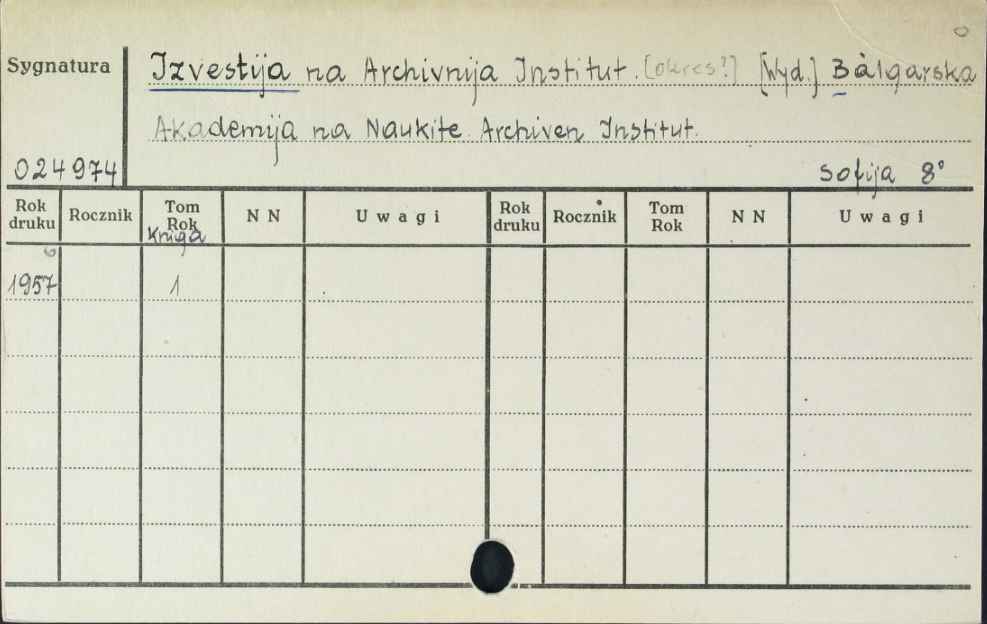 Sygnatura
Izvestija na Archivnija Institut. [okres?] [Wyd.] Bàlgarska
Akademija na Naukite. Archiven Institut.
024974
Sofija 8°
Rok druku Rocznik Tom Rok Kniga NN Uwagi Rok druku Rocznik Tom Rok NN Uwagi
1957 1